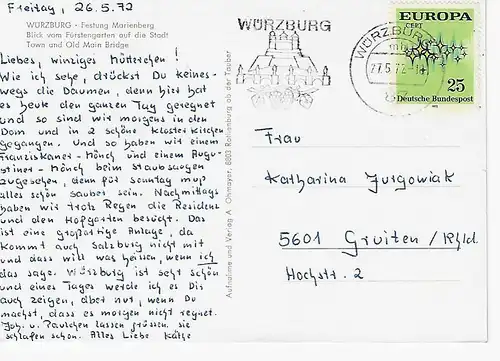 Freitag, 26.5.72
WÜRZBURG - Festung Marienberg
Blick vom Fürstengarten auf die Stadt
Town and Old Main Bridge
Liebes, winziges Mütterchen!
Wie ich sehe, drückst Du keines-
wegs die Daumen, denn hier hat
es heute den ganzen Tag geregnet
und so sind wir morgens in den
Dom und in 2 schöne Klosterkirchen
gegangen. Und so haben wir einem
Franziskaner-Mönch und einem Augu-
stiner-Mönch beim Staubsaugen
zugesehen, denn für Sonntag muß
alles schön sauber sein. Nachmittags
haben wir trotz Regen die Residenz
und den Hofgarten besucht. Das
ist eine großartige Anlage, da
kommt auch Salzburg nicht mit
und dass will was heissen, wenn ich
das sage. Würzburg ist sehr schön
und eines Tages werde ich es Dir
auch zeigen, aber nur, wenn Du
machst, dass es morgen nicht regnet.
Joh. u. Paulchen lassen grüssen, sie
schlafen schon. Alles Liebe Käthe
Aufnahme und Verlag A. Ohmayer, 8803 Rothenburg ob der Tauber
WÜRZBURG
WÜRZBURG
27.5.72
EUROPA
CEPT
25
Deutsche Bundespost
Frau
Katharina Jurgowiak
5601 Gruiten/Rhld.
Hochstr. 2